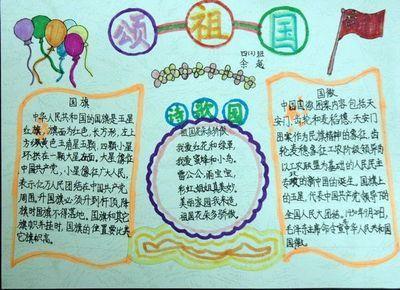 颂祖国
四(3)班
余越
国旗
中华人民共和国的国旗是五星
红旗，旗面为红色，长方形，左上
方缀黄色五角星五颗，四颗小星
环拱在一颗大星
中国共产党，小星像征广大人民，
表示亿万人民团结在中国共产党
周围，升国旗必须升到杆顶，降
旗时国旗不得落地。国旗和其它
旗帜并挂时，国旗的位置要比其
它旗帜高。
诗歌园
祖国是多骄傲
我爱鱼花和绿草，
我爱蜜蜂和小鸟，
雪公公，雨宝宝，
彩虹姐姐真美妙，
美丽家园我来造，
祖国花朵多骄傲。
国徽
中国国徽图案内容包括天
安门、齿轮和麦稻穗，天安门
图案作为民族精神的象征，齿
轮麦穗象征工农阶级领导的
以工农联盟为基础的人民民主
专政的新中国的诞生。国旗上
的五星，代表中国共产党领导下的
全国人民大团结。1950年9月20日，
毛泽东主席命令宣布中华人民共和国
国徽。